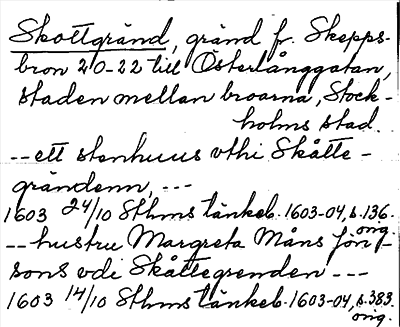 Skottgränd, gränd fr. Skepps-
bron 20-22 till Österlånggatan,
staden mellan broarna, Stock-
holms stad.
-- ett stenhuus vthi Skåtte-
grändenn, ---
1603 24/10 Sthms tänkeb. 1603-04, s. 136.
orig.
-- hustru Margreta Måns Jön-
sons vdi Skåttegrenden ---
1603 14/10 Sthms tänkeb. 1603-04, s. 383.
orig.